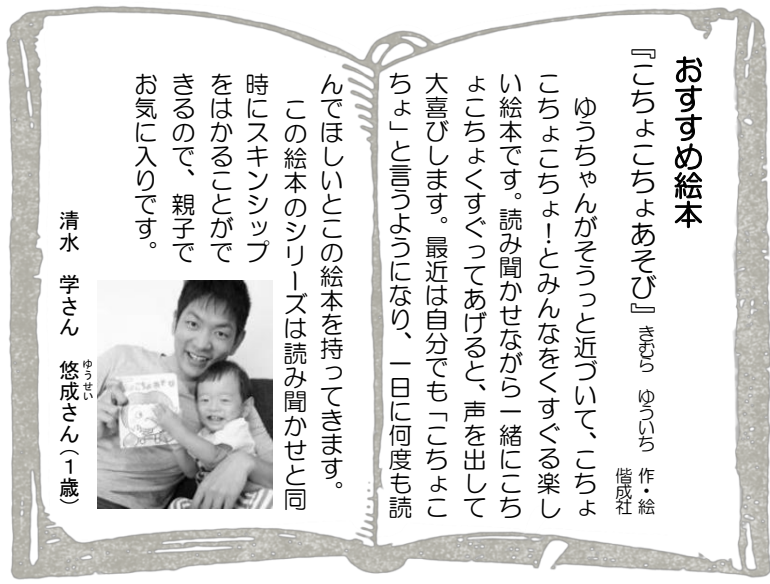 おすすめ絵本
『こちょこちょあそび』きむら　ゆういち　作・絵
偕成社
ゆうちゃんがそうっと近づいて、こちょ
こちょこちょ！とみんなをくすぐる楽し
い絵本です。読み聞かせながら一緒にこち
ょこちょくすぐってあげると、声を出して
大喜びします。最近は自分でも「こちょこ
ちょ」と言うようになり、一日に何度も読
んでほしいとこの絵本を持ってきます。
この絵本のシリーズは読み聞かせと同
時にスキンシップ
をはかることがで
きるので、親子で
お気に入りです。
清水　学さん　悠成さん（１歳）
ゆうせい